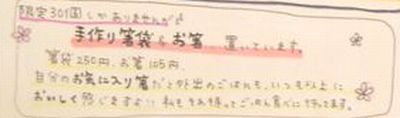 限定30個しかありませんが
手作り箸袋&お箸、置いています。
箸袋250円、お箸105円、
自分のお気に入り箸だと外出のごはんも、いつも以上に
おいしく感じますよ!! 私もそれ持ってごはん食べに行ってます。